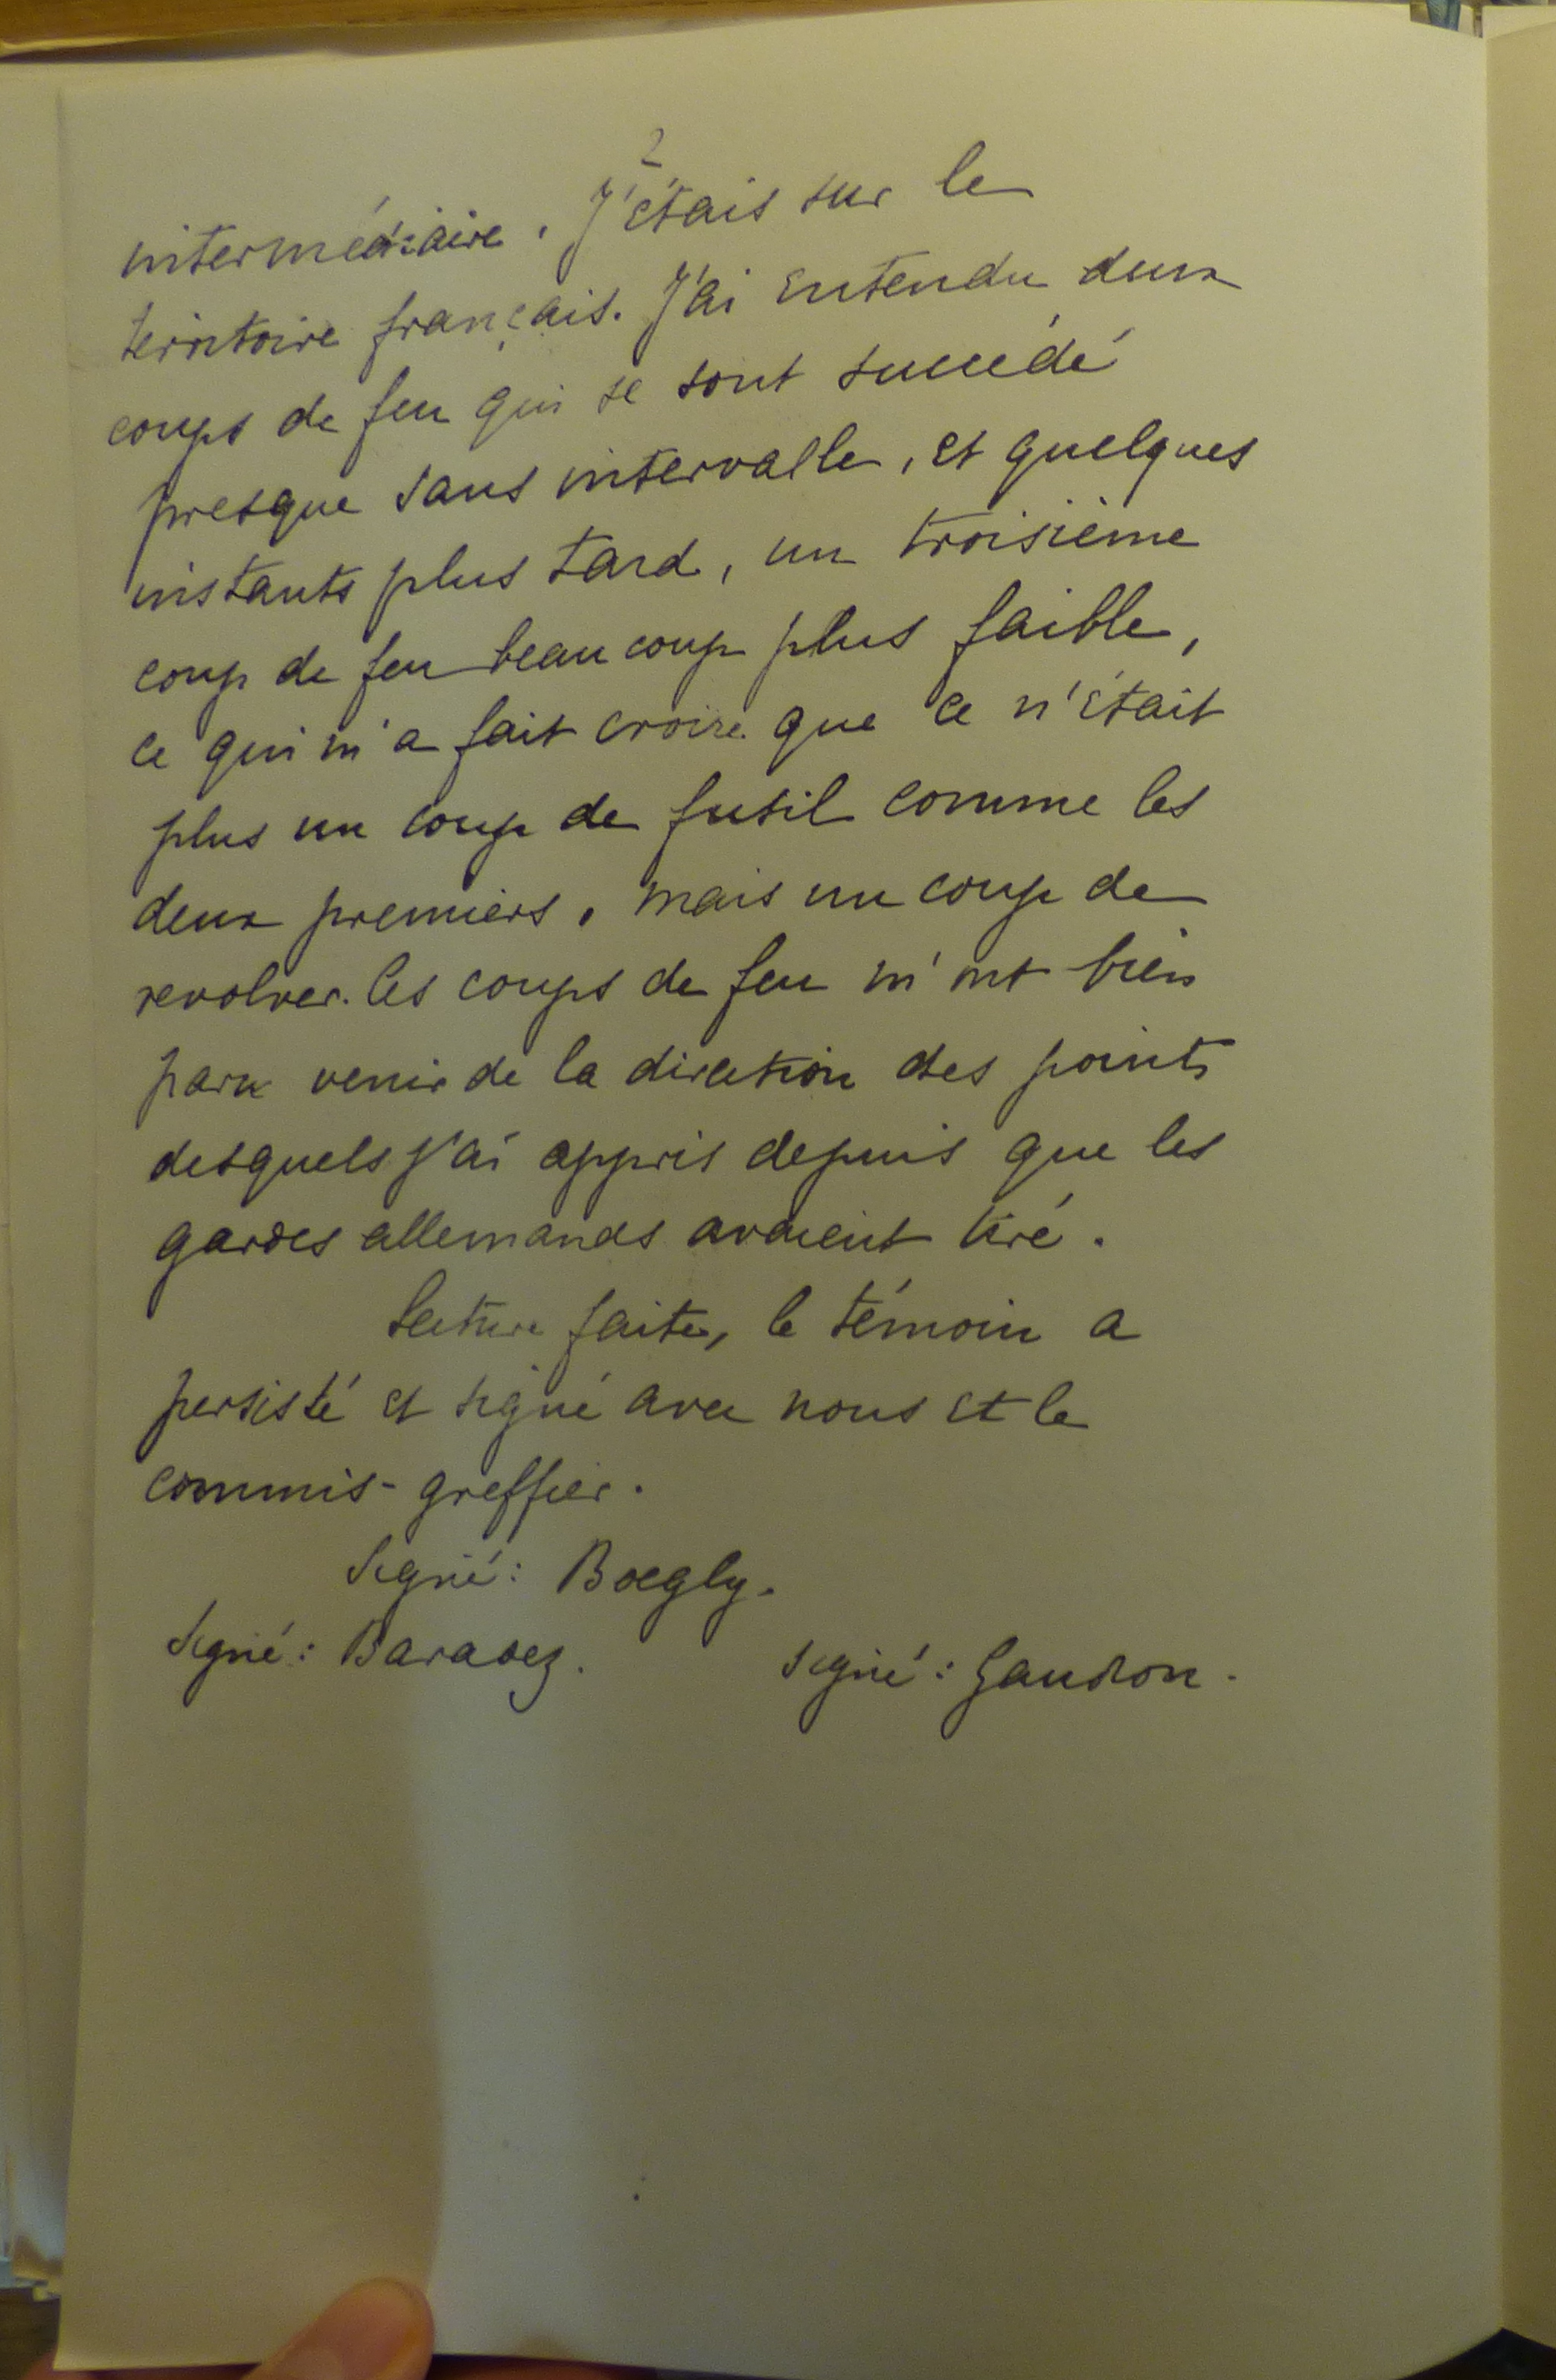 2
intermédiaire. J'étais sur le
territoire français. J'ai entendu deux
coups de feu qui se sont succédé
presque sans intervalle, et quelques
instants plus tard, un troisième
coup de feu beaucoup plus faible,
ce qui m'a fait croire que ce n'était
plus un coup de fusil comme les
deux premiers, mais un coup de
revolver. Ces coups de feu m'ont bien
paru venir de la direction des points
desquels j'ai appris depuis que les
gardes allemands avaient tiré.
Lecture faite, le témoin a
persisté et signé avec nous et le
commis-greffier.
Signé: Boegly.
Signé: Baradez. Signé: Gaudron.